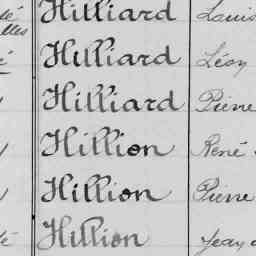 Hilliard Louis
Hilliard Léon
Hilliard Pierre
Hillion René
Hillion Pierre
Hillion Jean